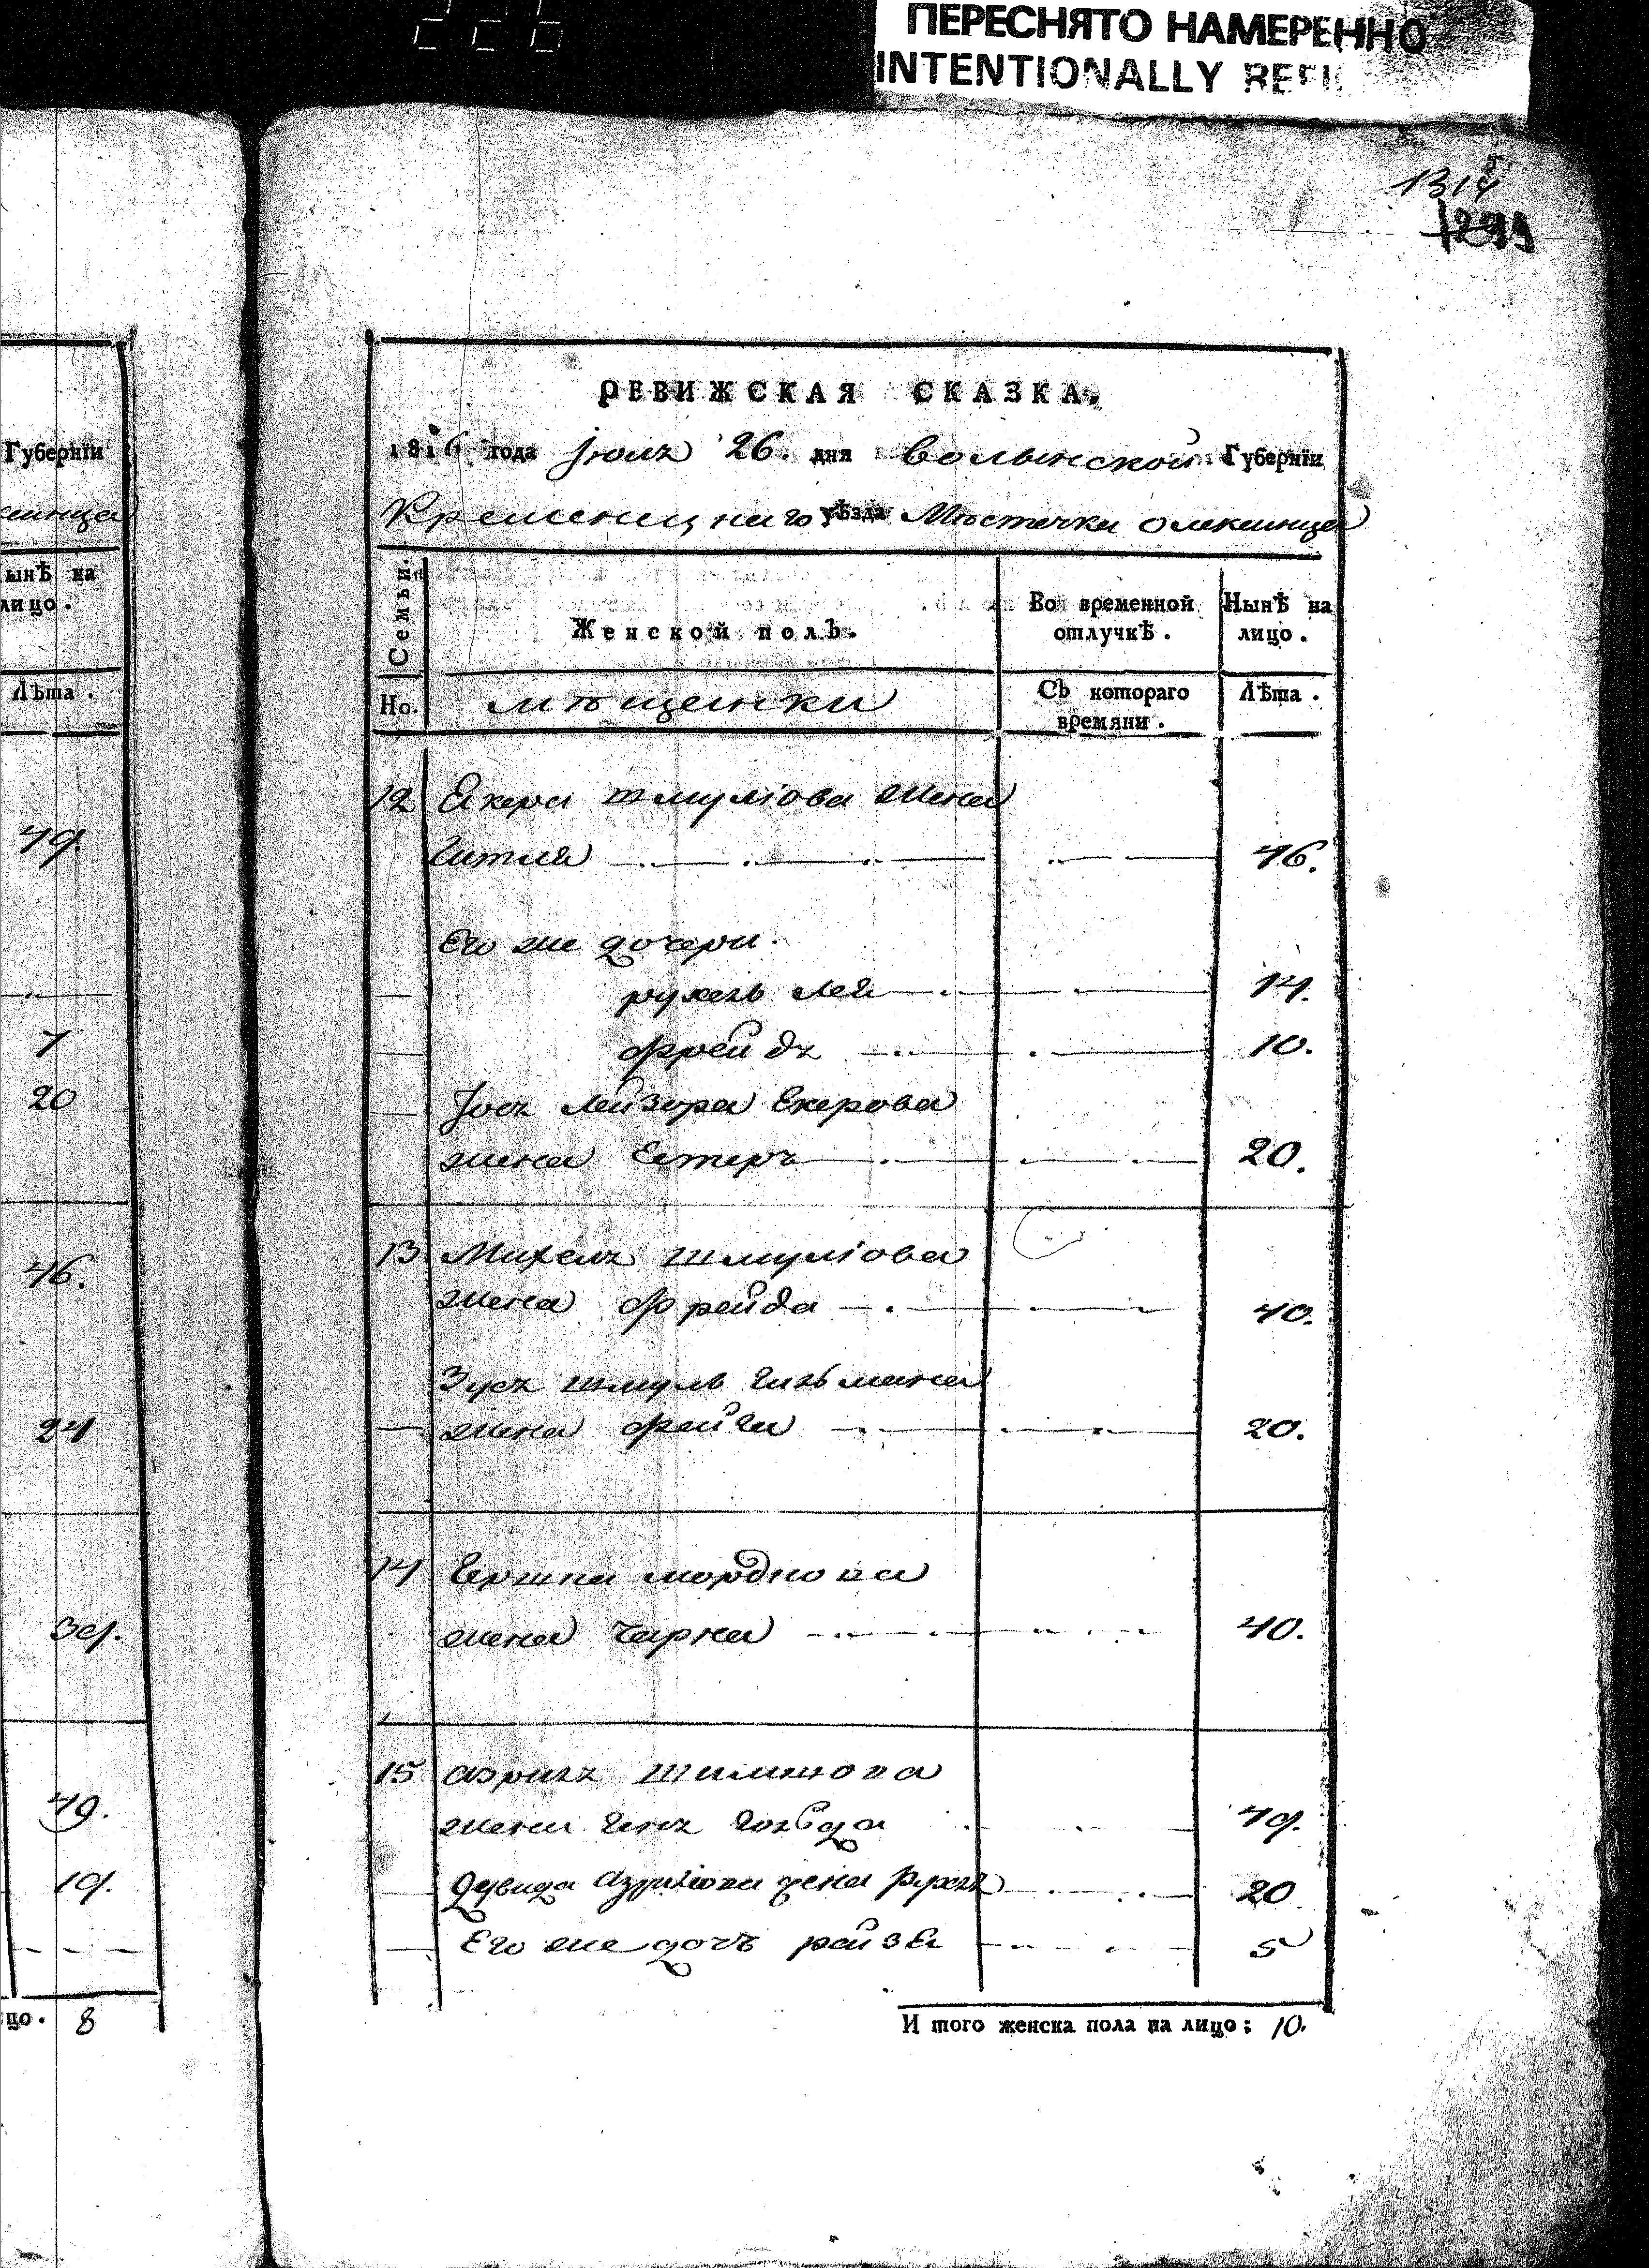 ПЕРЕСНЯТО НАМЕРЕННО
INTENTIONALLY
1314
1299
Губернїи
ынѢ на
лицо.
ЛѢта.
49.
7
20
46.
24
39.
49.
19.
цо. 8
РЕВИЖСКАЯ СКАЗКА.
1816 года Јюлъ 26. дня Волынской Губернїи
Кременецкаго уѢзда МѢстечка Олексинца
Семьи.
Женской полЪ.
Во временной отлучкѢ.
НынѢ на лицо.
Но. мѢщенки
СЪ котораго времяни.
ЛѢта.
12 Екера шмулiова жена
Гитля 46.
Его же дочери.
рухель лея 14.
фрейдъ 10.
Јосъ Лейзора Екерова
жена Естеръ 20.
13 Михелъ шмулiова
жена фрейда 40.
Зусъ шмуль Гизьмана
жена фейга 20.
14 Гершка мордкова
жена Чарна 40.
15 азрилъ шимшова
жена генъ 49.
Давида Азрилiова жена Рухлъ 20
Его же дочъ рейзя 5
И того женска пола на лицо: 10.